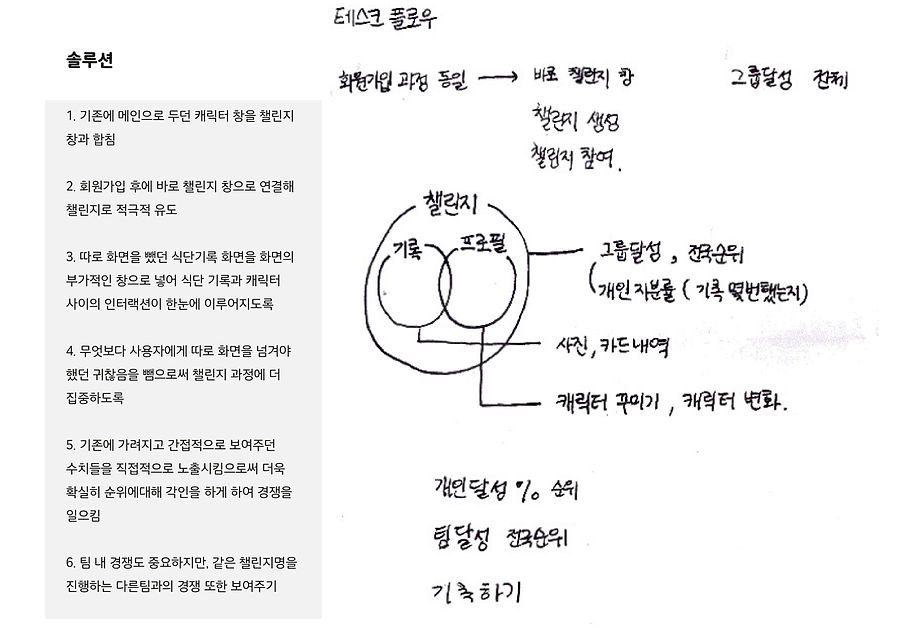 솔루션
1. 기존에 메인으로 두던 캐릭터 창을 챌린지
창과 합침
2. 회원가입 후에 바로 챌린지 창으로 연결해
챌린지로 적극적 유도
3. 따로 화면을 뺐던 식단기록 화면을 화면의
부가적인 창으로 넣어 식단 기록과 캐릭터
사이의 인터랙션이 한눈에 이루어지도록
4. 무엇보다 사용자에게 따로 화면을 넘겨야
했던 귀찮음을 뺌으로써 챌린지 과정에 더
집중하도록
5. 기존에 가려지고 간접적으로 보여주던
수치들을 직접적으로 노출시킴으로써 더욱
확실히 순위에대해 각인을 하게 하여 경쟁을
일으킴
6. 팀 내 경쟁도 중요하지만, 같은 챌린지명을
진행하는 다른팀과의 경쟁 또한 보여주기
테스크 플로우
회원가입 과정 동일 → 바로 챌린지 창
그룹달성 전체
챌린지 생성
챌린지 참여.
챌린지
기록
프로필
그룹달성, 전국순위
개인 지분률 (기록 몇번했는지)
사진, 카드내역
캐릭터 꾸미기, 캐릭터 변화.
개인달성 % 순위
팀달성 전국순위
기록하기